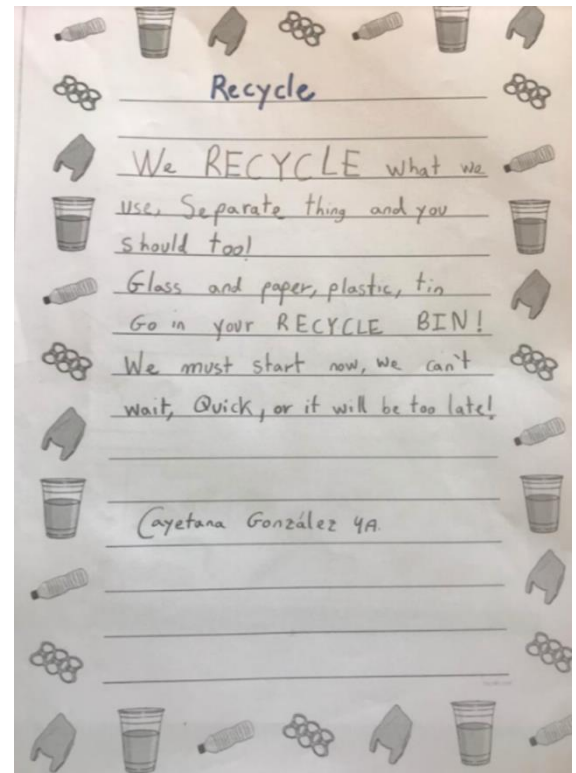 Recycle
We RECYCLE what we
use, Separate thing and you
should too!
Glass and paper, plastic, tin
Go in your RECYCLE BIN!
We must start now, we can't
wait, Quick, or it will be too late!
Cayetana González 4A.